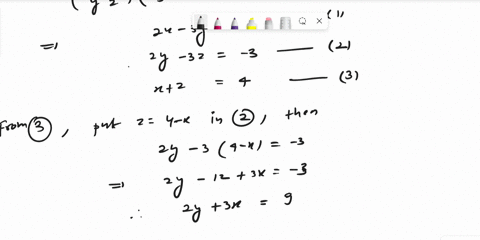 (1)
2x - 3y
=> 2y - 3z = -3 —— (2)
x + z = 4 —— (3)
from (3), put z = 4-x in (2), then
2y - 3(4-x) = -3
=> 2y - 12 + 3x = -3
∴ 2y + 3x = 9